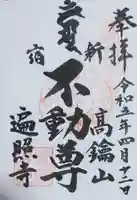 奉拝 令和五年四月十二日
新高鑰山
不動尊
宿
遍照寺